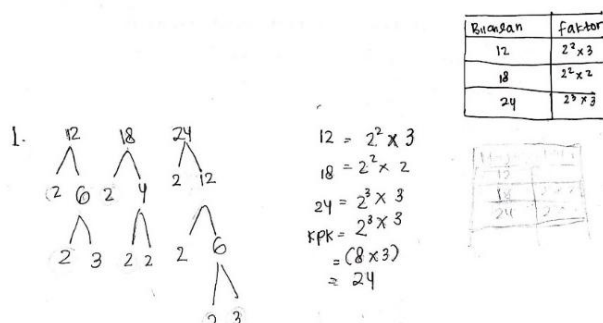 Bilangan | faktor
12 | 2² × 3
18 | 2² × 2
24 | 2³ × 3
1.
12 18 24
2 6 2 4 2 12
2 3 2 2 2 6
2 3
12 = 2² × 3
18 = 2² × 2
24 = 2³ × 3
KPK = 2³ × 3
= (8 × 3)
= 24
12
18
24